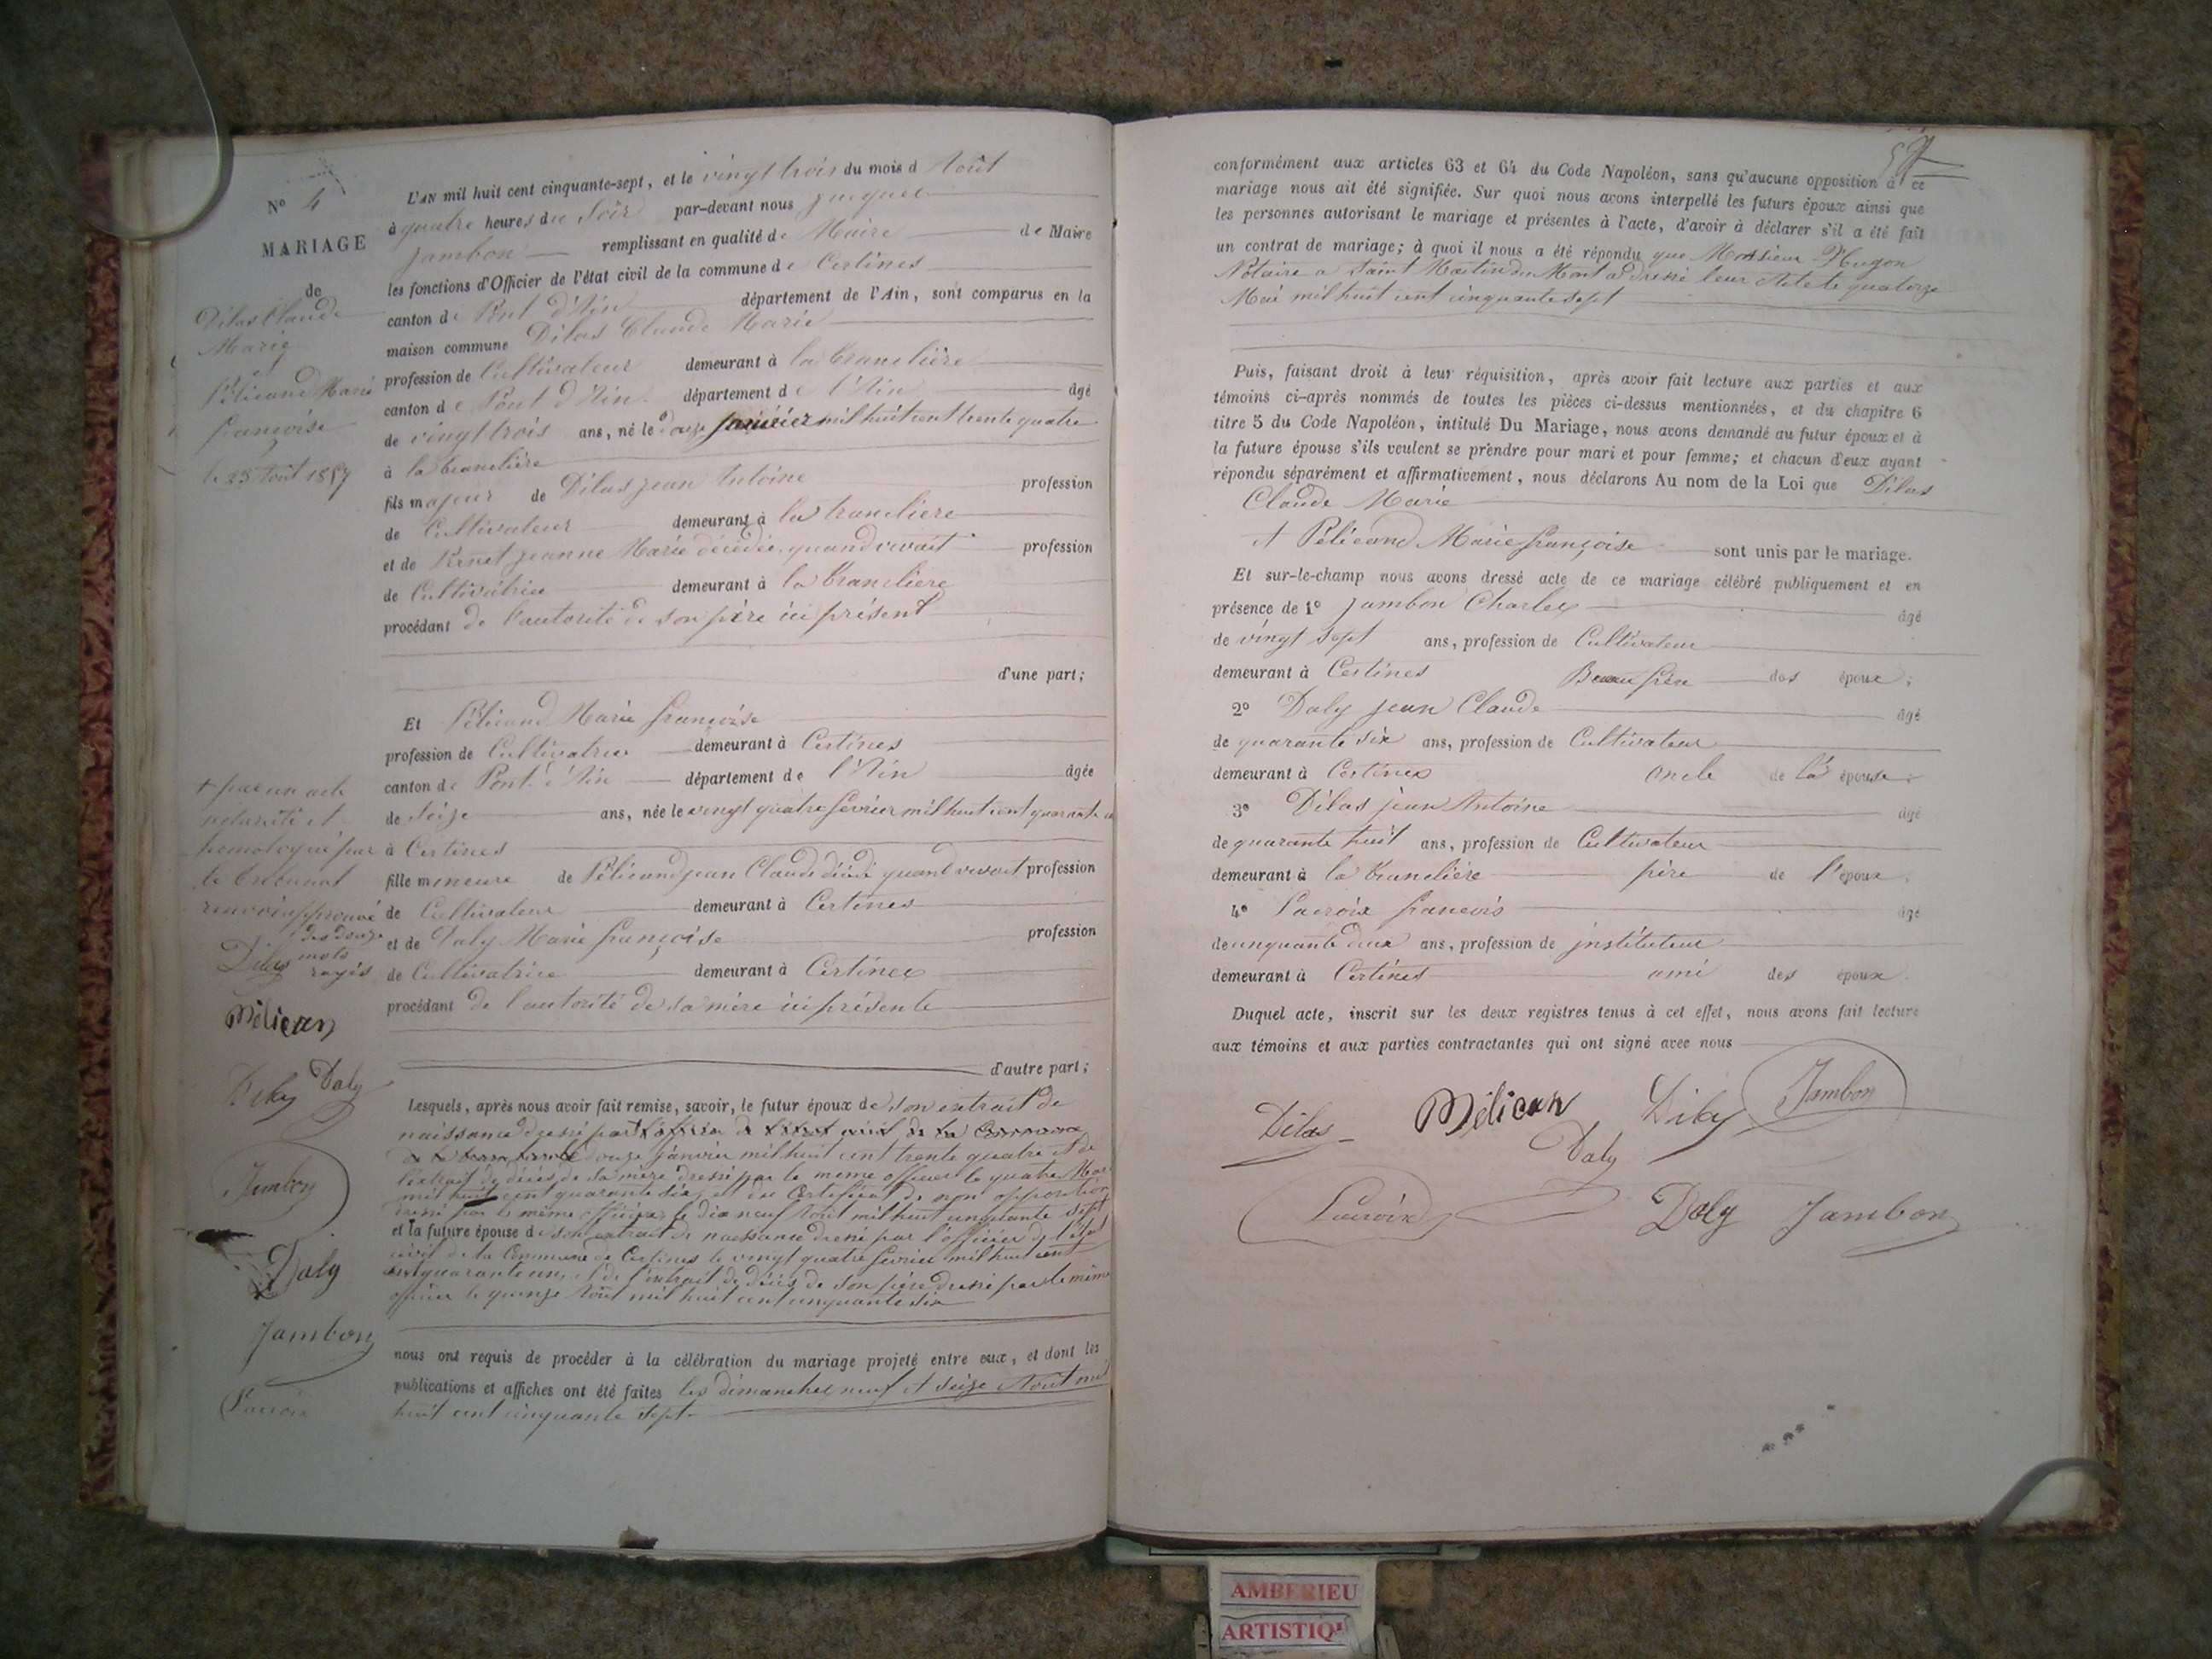 N° 4
MARIAGE
de
Dilas Claude
Marie
et
Pélicand Marie
françoise
le 23 Août 1857
+ par un acte
notorité et
homologué par
le tribunal
renvoi approuvé
des douze
mots
rayés
Dilas
Mélican
Daly
Jambon
Daly
Jambon
Lacroix
L'AN mil huit cent cinquante-sept, et le vingt trois du mois d Août
à quatre heures du Soir par-devant nous jacques
jambon remplissant en qualité de Maire de Maire
les fonctions d'Officier de l'état civil de la commune de Certines
canton de Pont d'Ain département de l'Ain, sont comparus en la
maison commune Dilas Claude Marie
profession de Cultivateur demeurant à la tranclière
canton de Pont d'Ain département de l'Ain âgé
de vingt trois ans, né le douze janvier mil huit cent trente quatre
à la tranclière
fils majeur de Dilas jean Antoine profession
de Cultivateur demeurant à la tranclière
et de jeanne Marie décédée quand vivait profession
de Cultivatrice demeurant à la tranclière
procédant de l'autorité de son père ici présent
d'une part;
Et Pélicand Marie françoise
profession de Cultivatrice demeurant à Certines
canton de Pont d'Ain département de l'Ain âgée
de Seize ans, née le vingt quatre février mil huit cent quarante un
à Certines
fille mineure de Pélicand jean Claude décédé quand vivait profession
de Cultivateur demeurant à Certines
et de Daly Marie françoise profession
de Cultivatrice demeurant à Certines
procédant de l'autorité de sa mère ici présente
d'autre part;
Lesquels, après nous avoir fait remise, savoir, le futur époux de son extrait de
naissance dressé par l'officier de l'état civil de la Commune
de la tranclière douze janvier mil huit cent trente quatre et de
l'extrait de décès de sa mère dressé par le même officier le quatre Mars
mil huit cent quarante six, et un Certificat de non opposition
dressé par le même officier le dix neuf Août mil huit cinquante sept
et la future épouse de son extrait de naissance dressé par l'officier de l'état
civil de la Commune de Certines le vingt quatre février mil huit cent
quarante un, et de l'extrait de décès de son père dressé par le même
officier le quinze Août mil huit cent cinquante six
nous ont requis de procéder à la célébration du mariage projeté entre eux, et dont les
publications et affiches ont été faites les dimanches neuf et seize Août mil
huit cent cinquante sept
57
conformément aux articles 63 et 64 du Code Napoléon, sans qu'aucune opposition à ce
mariage nous ait été signifiée. Sur quoi nous avons interpellé les futurs époux ainsi que
les personnes autorisant le mariage et présentes à l'acte, d'avoir à déclarer s'il a été fait
un contrat de mariage; à quoi il nous a été répondu que Monsieur Hugon
Notaire a Saint Martin du Mont a dressé leur Acte le quatorze
Mai mil huit cent cinquante sept
Puis, faisant droit à leur réquisition, après avoir fait lecture aux parties et aux
témoins ci-après nommés de toutes les pièces ci-dessus mentionnées, et du chapitre 6
titre 5 du Code Napoléon, intitulé Du Mariage, nous avons demandé au futur époux et à
la future épouse s'ils veulent se prendre pour mari et pour femme; et chacun d'eux ayant
répondu séparément et affirmativement, nous déclarons Au nom de la Loi que Dilas
Claude Marie
et Pélicand Marie françoise sont unis par le mariage.
Et sur-le-champ nous avons dressé acte de ce mariage célébré publiquement et en
présence de 1° jambon Charles âgé
de vingt sept ans, profession de Cultivateur
demeurant à Certines Beau frère des époux;
2° Daly jean Claude âgé
de quarante six ans, profession de Cultivateur
demeurant à Certines oncle de la épouse;
3° Dilas jean Antoine âgé
de quarante huit ans, profession de Cultivateur
demeurant à la tranclière père de l'époux,
4° Lacroix françois âgé
de cinquante deux ans, profession de instituteur
demeurant à Certines ami des époux.
Duquel acte, inscrit sur les deux registres tenus à cet effet, nous avons fait lecture
aux témoins et aux parties contractantes qui ont signé avec nous
Dilas Mélican Jambon
Daly
Lacroix Daly Jambon
AMBERIEU
ARTISTIQ